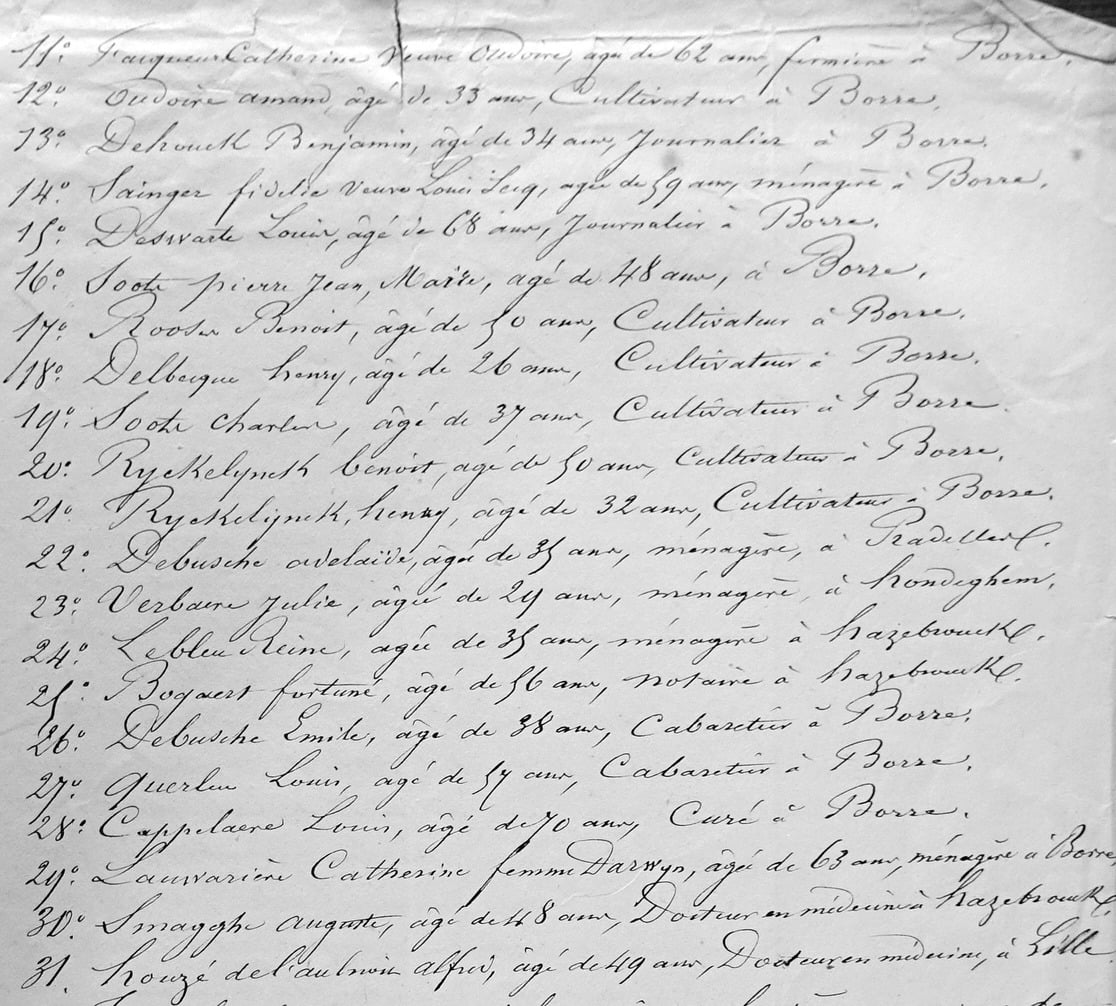 11° Faiqueur Catherine Veuve Oudoire, âgé de 62 ans, fermière à Borre.
12° Oudoire amand, âgé de 33 ans, Cultivateur à Borre.
13° Dehouck Benjamin, âgé de 34 ans, Journalier à Borre.
14° Sainger fidelie Veuve Louis Secq, agée de 59 ans, ménagère à Borre.
15° Deswarte Louis, âgé de 68 ans, Journalier à Borre.
16° Soote pierre Jean, Marie, agé de 48 ans, à Borre.
17° Rooses Benoit, âgé de 50 ans, Cultivateur à Borre.
18° Delbecque henry, âgé de 26 ans, Cultivateur à Borre.
19° Soote charles, âgé de 37 ans, Cultivateur à Borre.
20° Ryckelynck benoit, agé de 50 ans, Cultivateur à Borre.
21° Ryckelynck, henry, âgé de 32 ans, Cultivateur à Borre.
22° Debusche adelaïde, agée de 35 ans, ménagère, à Pradelles.
23° Verbaere Julie, âgée de 29 ans, ménagère, à hondeghem.
24° Lebleu Reine, agée de 35 ans, ménagère à hazebrouck.
25° Bogaert fortuné, âgé de 56 ans, notaire à hazebrouck.
26° Debusche Emile, âgé de 38 ans, Cabaretier à Borre.
27° Querleu Louis, agé de 57 ans, Cabaretier à Borre.
28° Cappelaere Louis, âgé de 70 ans, Curé à Borre.
29° Lauwarière Catherine femme Darwyn, âgée de 63 ans, ménagère à Borre
30° Smagghe auguste, âgé de 48 ans, Docteur en médecine à hazebrouck,
31. houzé de l'aulnoit alfred, âgé de 49 ans, Docteur en médecine, à Lille